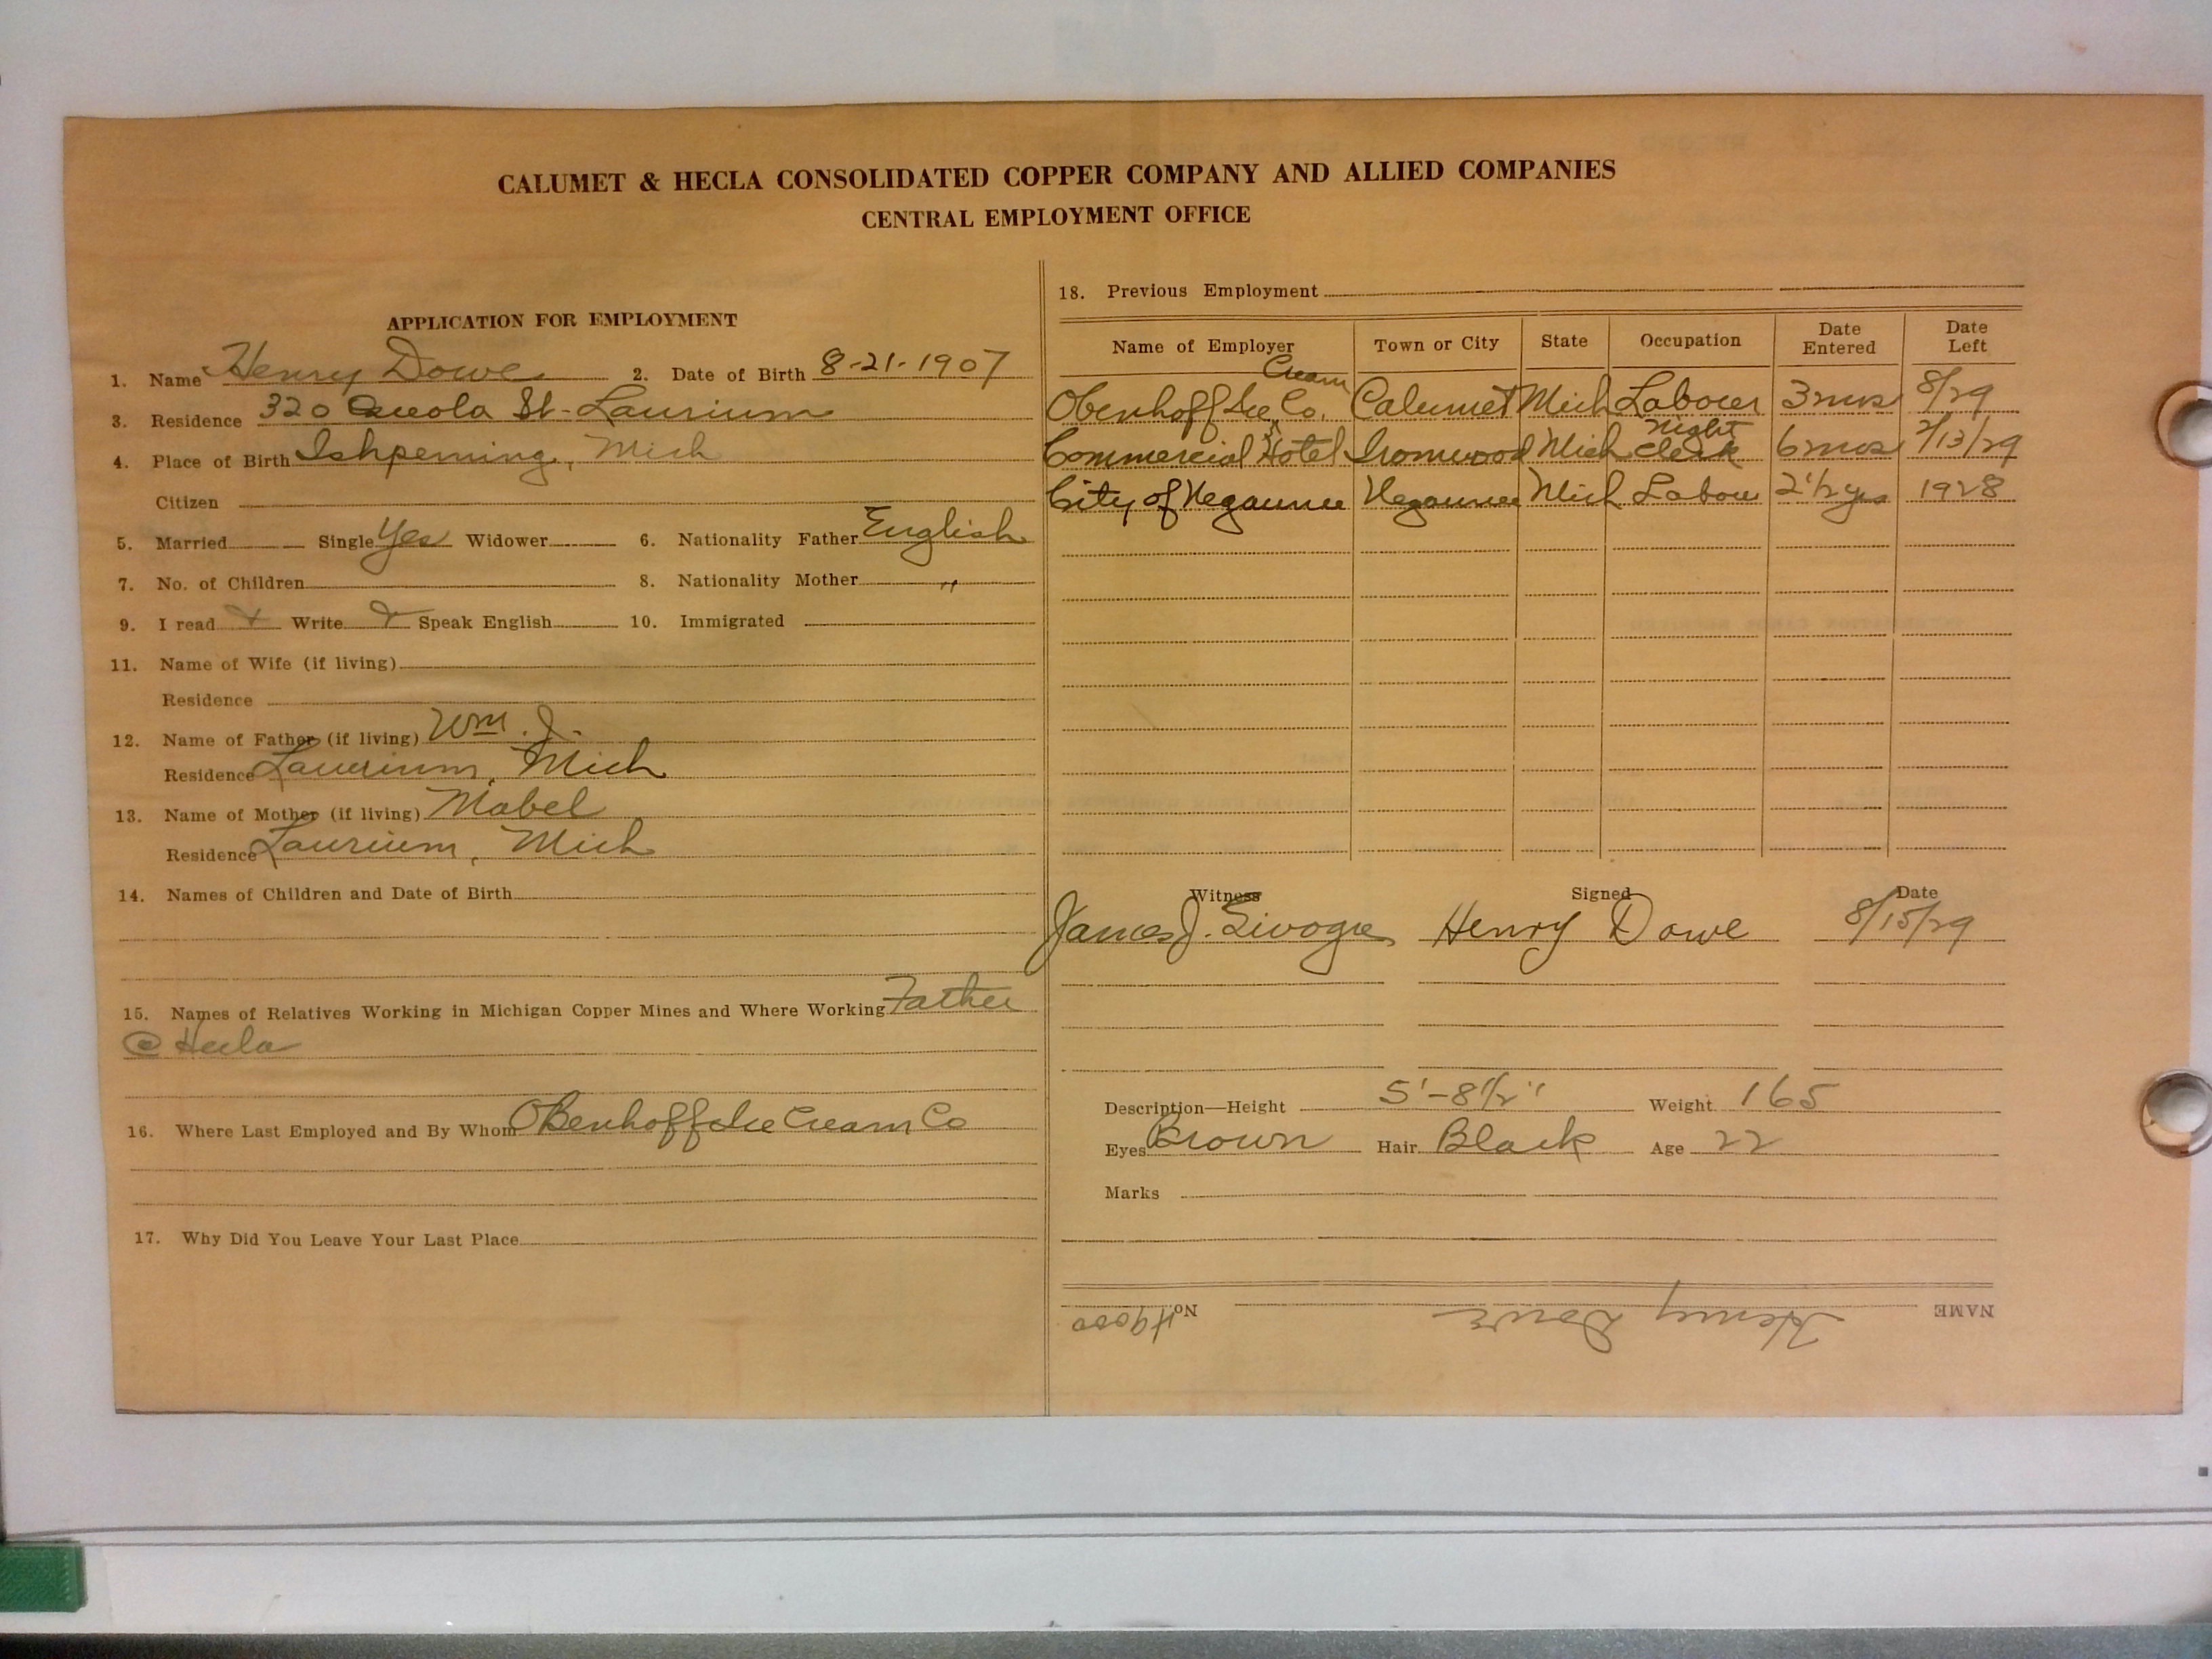 CALUMET & HECLA CONSOLIDATED COPPER COMPANY AND ALLIED COMPANIES
CENTRAL EMPLOYMENT OFFICE
APPLICATION FOR EMPLOYMENT
1. Name Henry Dowe 2. Date of Birth 8-21-1907
3. Residence 320 St- Laurium
4. Place of Birth Ishpeming, Mich
Citizen
5. Married Single Yes Widower 6. Nationality Father English
7. No. of Children 8. Nationality Mother "
9. I read Write Speak English 10. Immigrated
11. Name of Wife (if living)
Residence
12. Name of Father (if living) Wm. J.
Residence Laurium, Mich
13. Name of Mother (if living) Mabel
Residence Laurium, Mich
14. Names of Children and Date of Birth
15. Names of Relatives Working in Michigan Copper Mines and Where Working Father
@ Hecla
16. Where Last Employed and By Whom Obenhoff Ice Cream Co
17. Why Did You Leave Your Last Place
18. Previous Employment
Name of Employer Town or City State Occupation Date Entered Date Left
Obenhoff Ice Cream Co. Calumet Mich Labour 3 mos 8/29
Commercial Hotel Ironwood Mich Night Clerk 6 mos 2/13/29
City of Negaunee Negaunee Mich Labour 2 1/2 yrs 1928
Witness Signed Date
James J. Henry Dowe 8/15/29
Description—Height 5'-8 1/2" Weight 165
Eyes Brown Hair Black Age 22
Marks
NAME Henry Dowe No. H9000